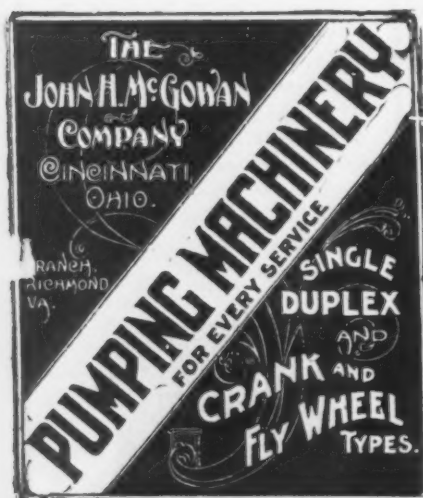 THE
JOHN H. McGOWAN
COMPANY
CINCINNATI,
OHIO.
RANCH,
RICHMOND
VA.
PUMPING MACHINERY
FOR EVERY SERVICE
SINGLE
DUPLEX
AND
CRANK AND
FLY WHEEL
TYPES.